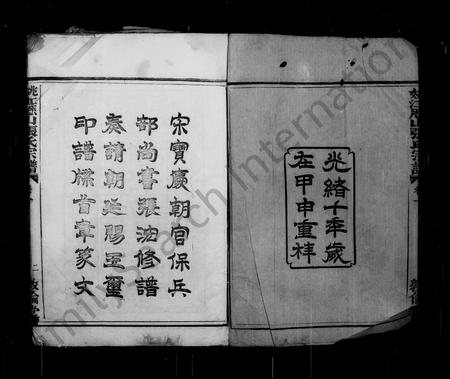 光緒十年歲
在甲申重梓
宋寶慶朝官保兵
部尚書張汯修譜
奏請朝廷賜玉璽
印譜牒首章篆文
姚江烝山張氏宗譜
FamilySearch International